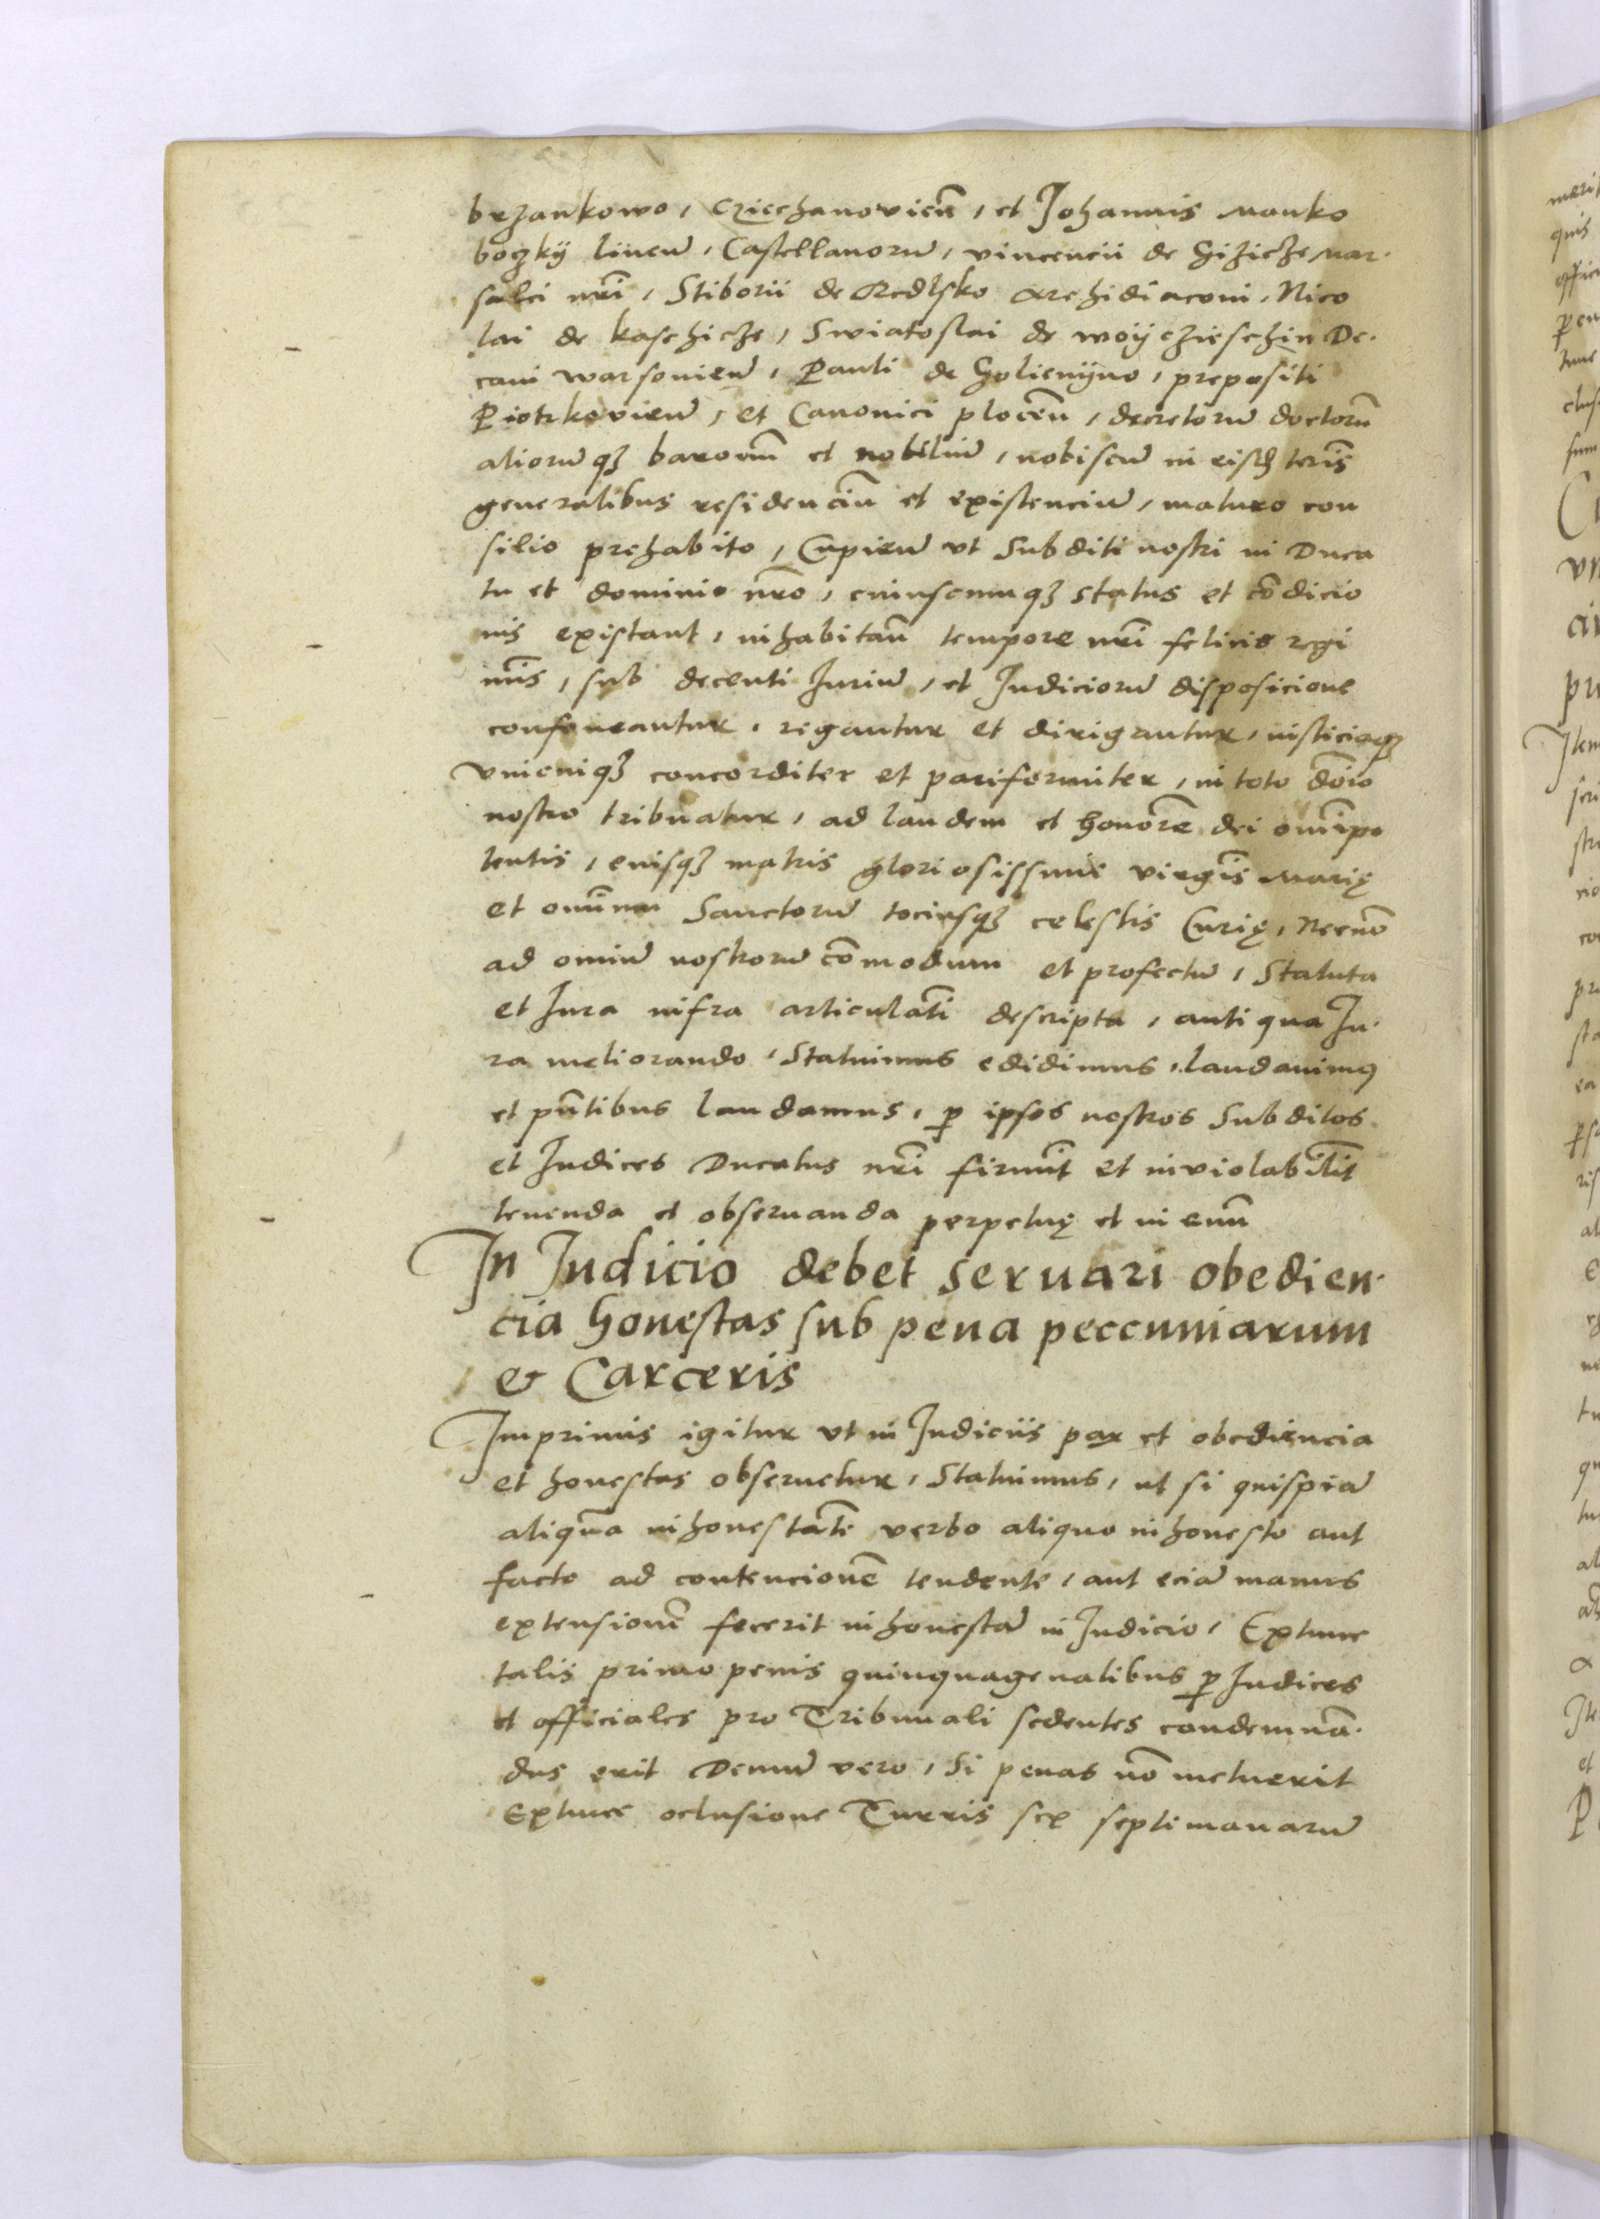 brzankowo, Cziechanovieñ, et Johannis Manko
boczkÿ liueñ, Castellanorū, vincencii de Gizicze Mar-
salci nr̄i, Stiborii de Redlsko Archidiaconi, Nico
lai de kaschicze, Swiatoslai de woÿczieschin De-
cani warsovieñ, Pauli de Golienÿno, prepositi
Piotrkovieñ, et Canonici ploceñ, decretorū doctorū
aliorūqꝫ baronū et nobiliū, nobiscū in eisdē teris
generalibus residenciū et existenciū, maturo con
silio prehabito, Cupieñ vt Subditi nostri in Duca
tu et dominio nr̄o, cuiuscumqꝫ status et cōdicio
nis existant, inhabitañ tempore nr̄i felicis regi
mīs, sub decenti Juriū, et Judiciorū disposicione
confoueantur, regantur et dirigantur, iusticiaqꝫ
vnicuiqꝫ concorditer et pariformiter, in toto dōio
nostro tribuatur, ad laudem et honorē dei omīpo
tentis, eiusqꝫ matris gloriosissime virgīs Marię
et omīum Sanctorū tociusqꝫ celestis Curię, Necnō
ad omiū nostrorū cōmodum et profectū, Statuta
et Jura infra articulatī descripta, antiqua Ju-
ra meliorando, Statuimus edidimus, laudauimꝰ
et pn̄tibus laudamus, ꝑ ipsos nostros Subditos
et Judices Ducatus nr̄i firmit̄ et inviolabilit̄
tenenda et obseruanda perpetuę et in euū
In Judicio debet seruari obedien-
cia honestas sub pena peccuniarum
& Carceris
Imprimis igitur vt in Judiciis pax et obediencia
et honestas obseruetur, Statuimus, ut si quispiā
aliquā inhonestatē verbo aliquo inhonesto aut
facto ad contencionē tendente, aut eciā manus
extensionē fecerit inhonestā in Judicio, Extunc
talis primo penis quinquagenalibus ꝑ Judices
et officiales pro Tribunali sedentes condemnā-
dus erit Demū vero, Si penas nō metuerit
Extunc oclusione Turris sex septimanarū